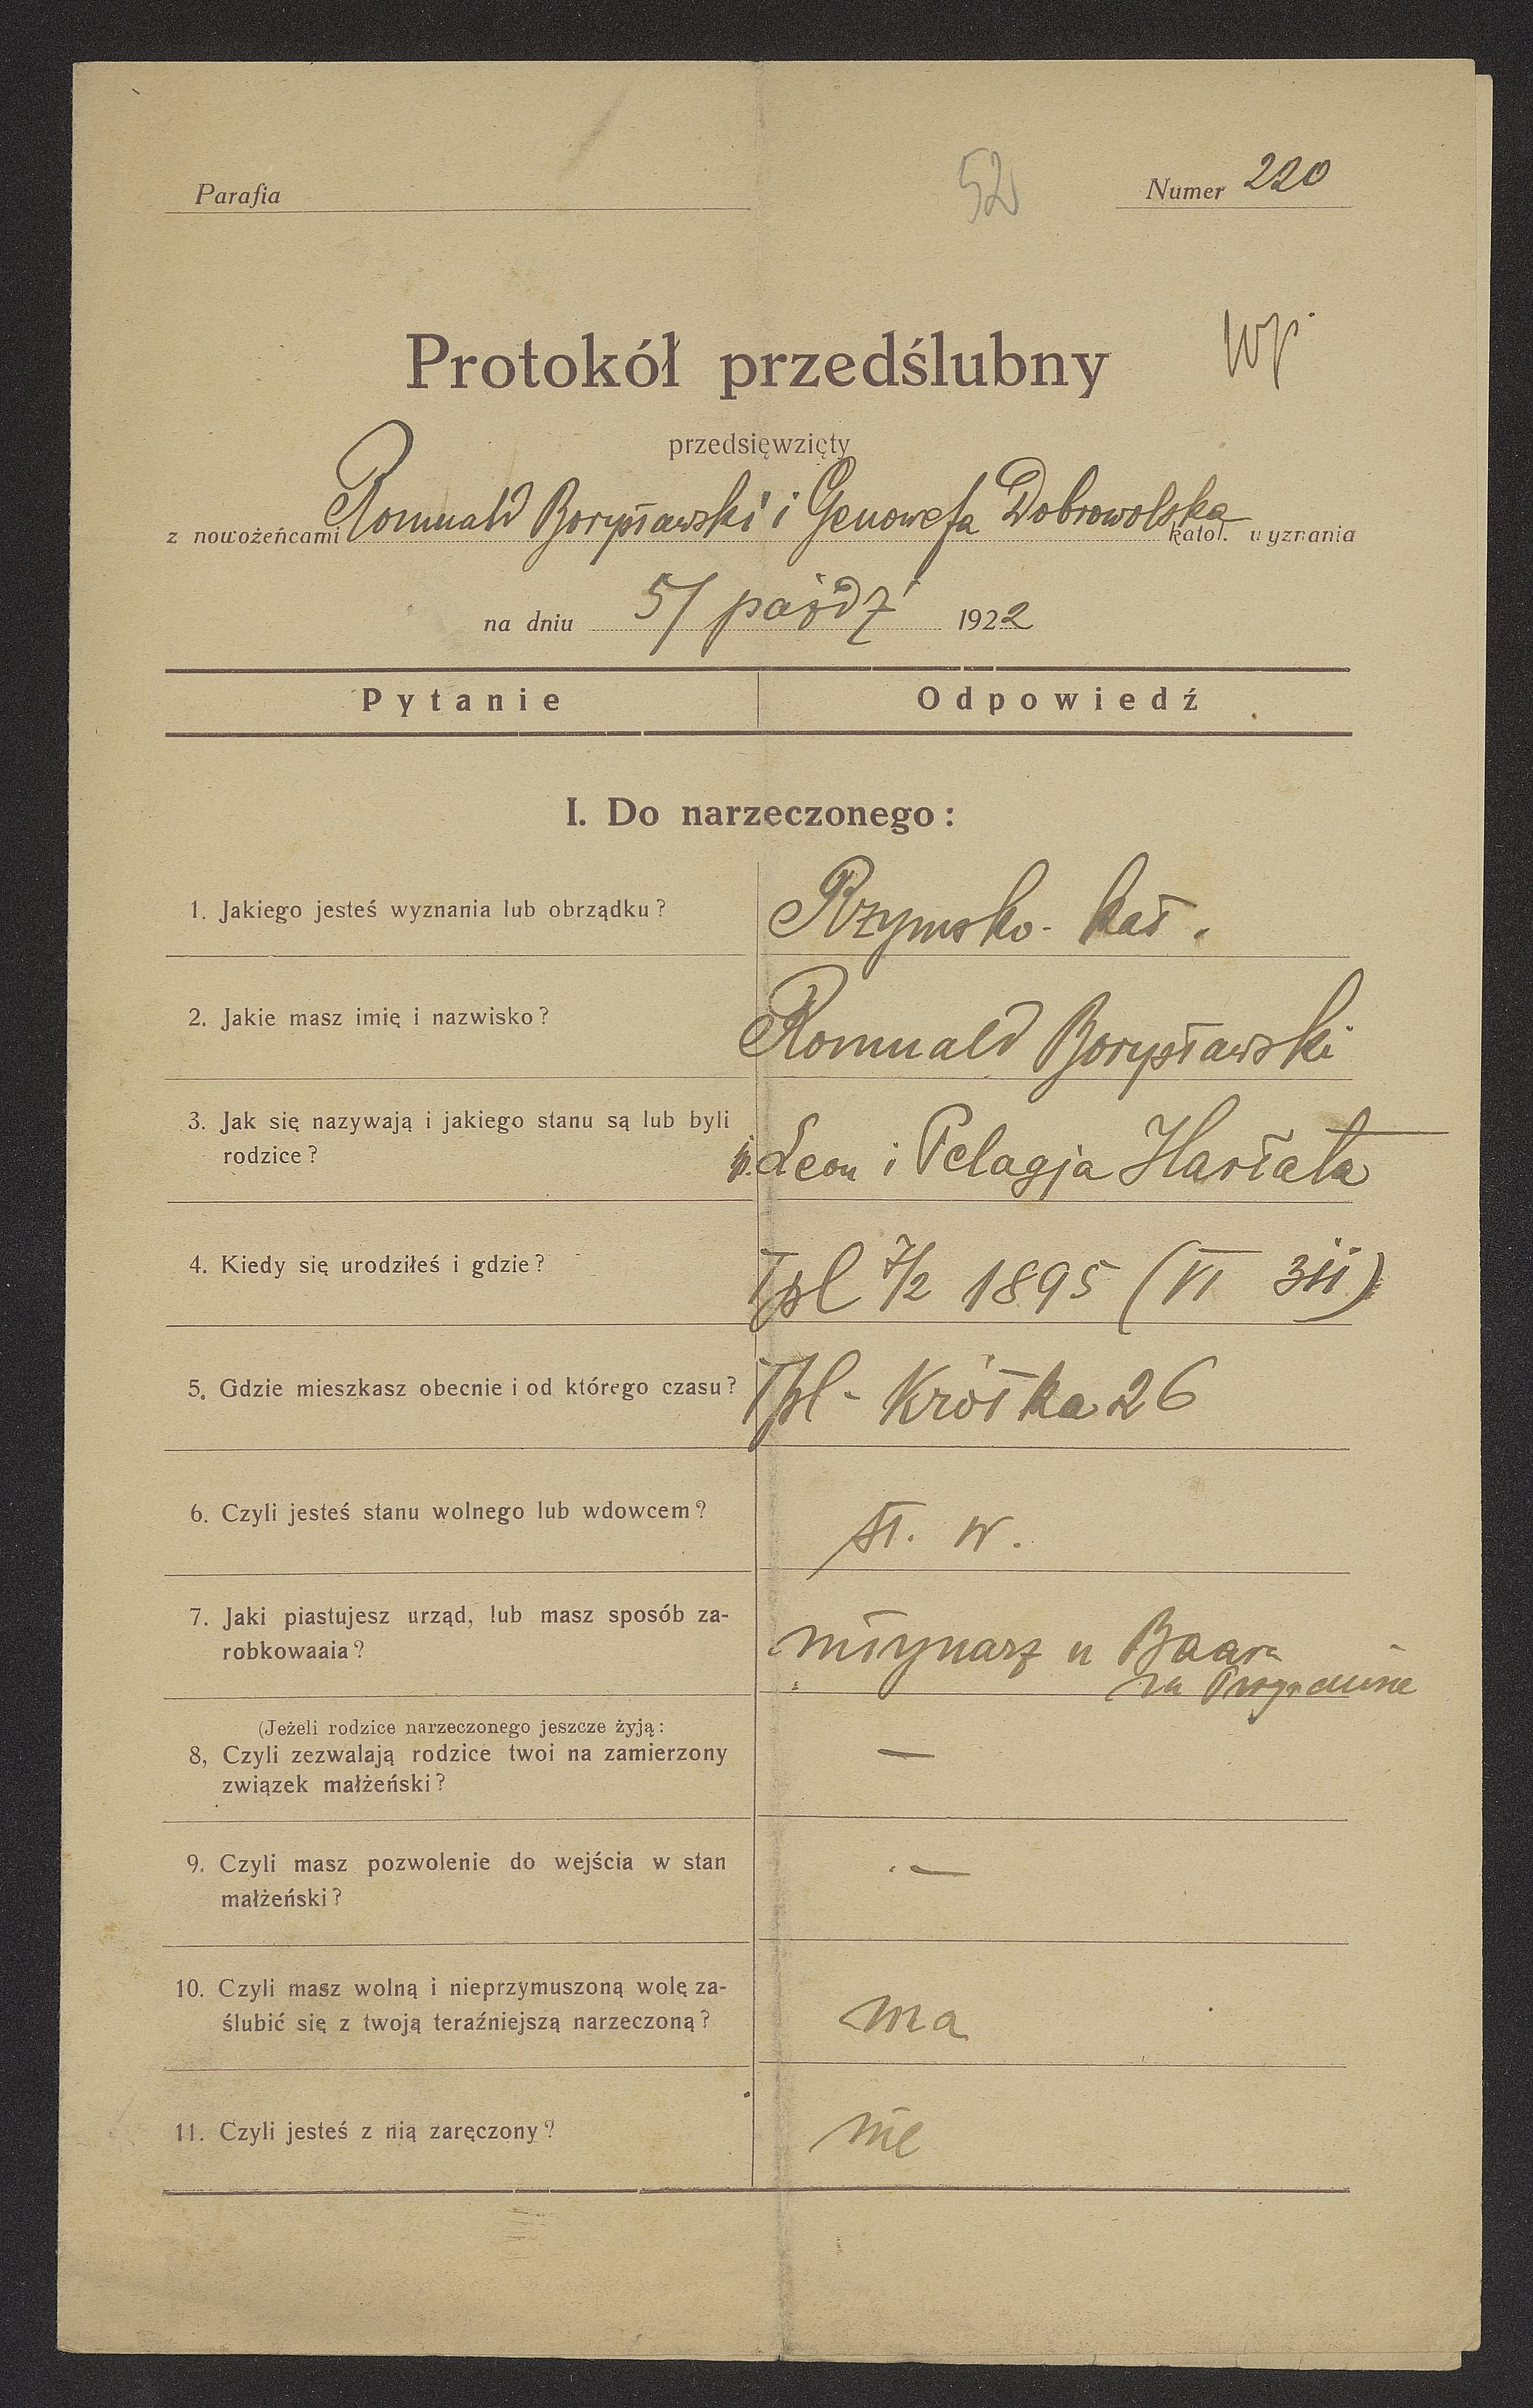 Parafia
52
Numer 220
Protokół przedślubny
wp.
przedsięwzięty
z nowożeńcami Romuald Borysławski i Genowefa Dobrowolska katol. wyznania
na dniu 5/ paźdz 1922
Pytanie
Odpowiedź
I. Do narzeczonego:
1. Jakiego jesteś wyznania lub obrządku?
Rzymsko-kat.
2. Jakie masz imię i nazwisko?
Romuald Borysławski
3. Jak się nazywają i jakiego stanu są lub byli
rodzice?
Leon i Pelagja Harłata
4. Kiedy się urodziłeś i gdzie?
Tpl 7/2 1895 (VI 311)
5. Gdzie mieszkasz obecnie i od którego czasu?
Tpl - Krótka 26
6. Czyli jesteś stanu wolnego lub wdowcem?
st. w.
7. Jaki piastujesz urząd, lub masz sposób za-
robkowaaia?
młynarz u Baara
(Jeżeli rodzice narzeczonego jeszcze żyją:
8, Czyli zezwalają rodzice twoi na zamierzony
związek małżeński?
—
9. Czyli masz pozwolenie do wejścia w stan
małżeński?
—
10. Czyli masz wolną i nieprzymuszoną wolę za-
ślubić się z twoją teraźniejszą narzeczoną?
ma
11. Czyli jesteś z nią zaręczony?
nie